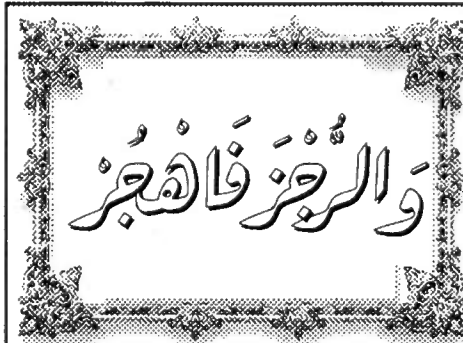 وَالرُّجْزَ فَاهْجُرْ